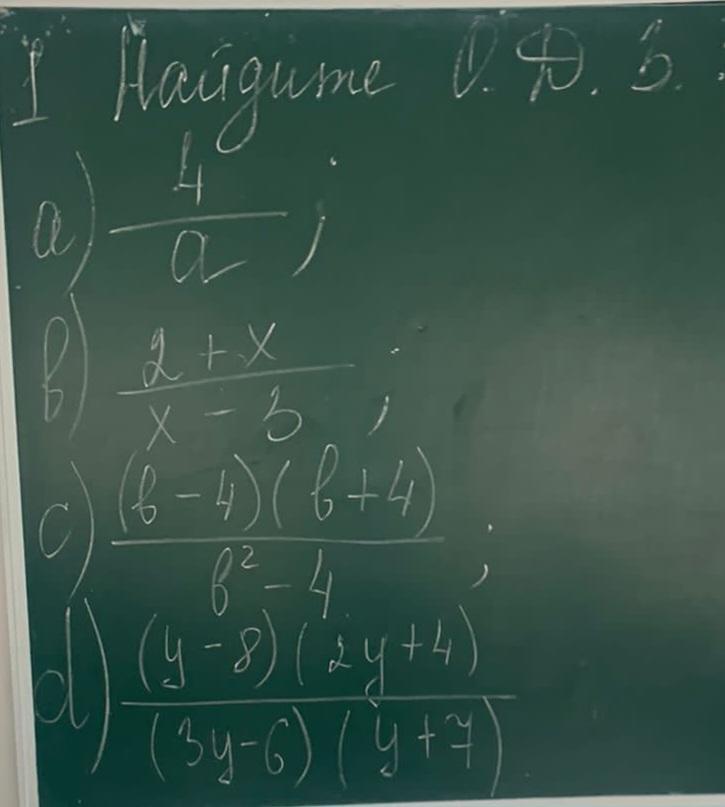 I Найдите О.Д.З.:
a) 4/a;
b) 2+x/x-3;
c) (b-4)(b+4)/b²-4;
d) (y-8)(2y+4)/(3y-6)(y+7)